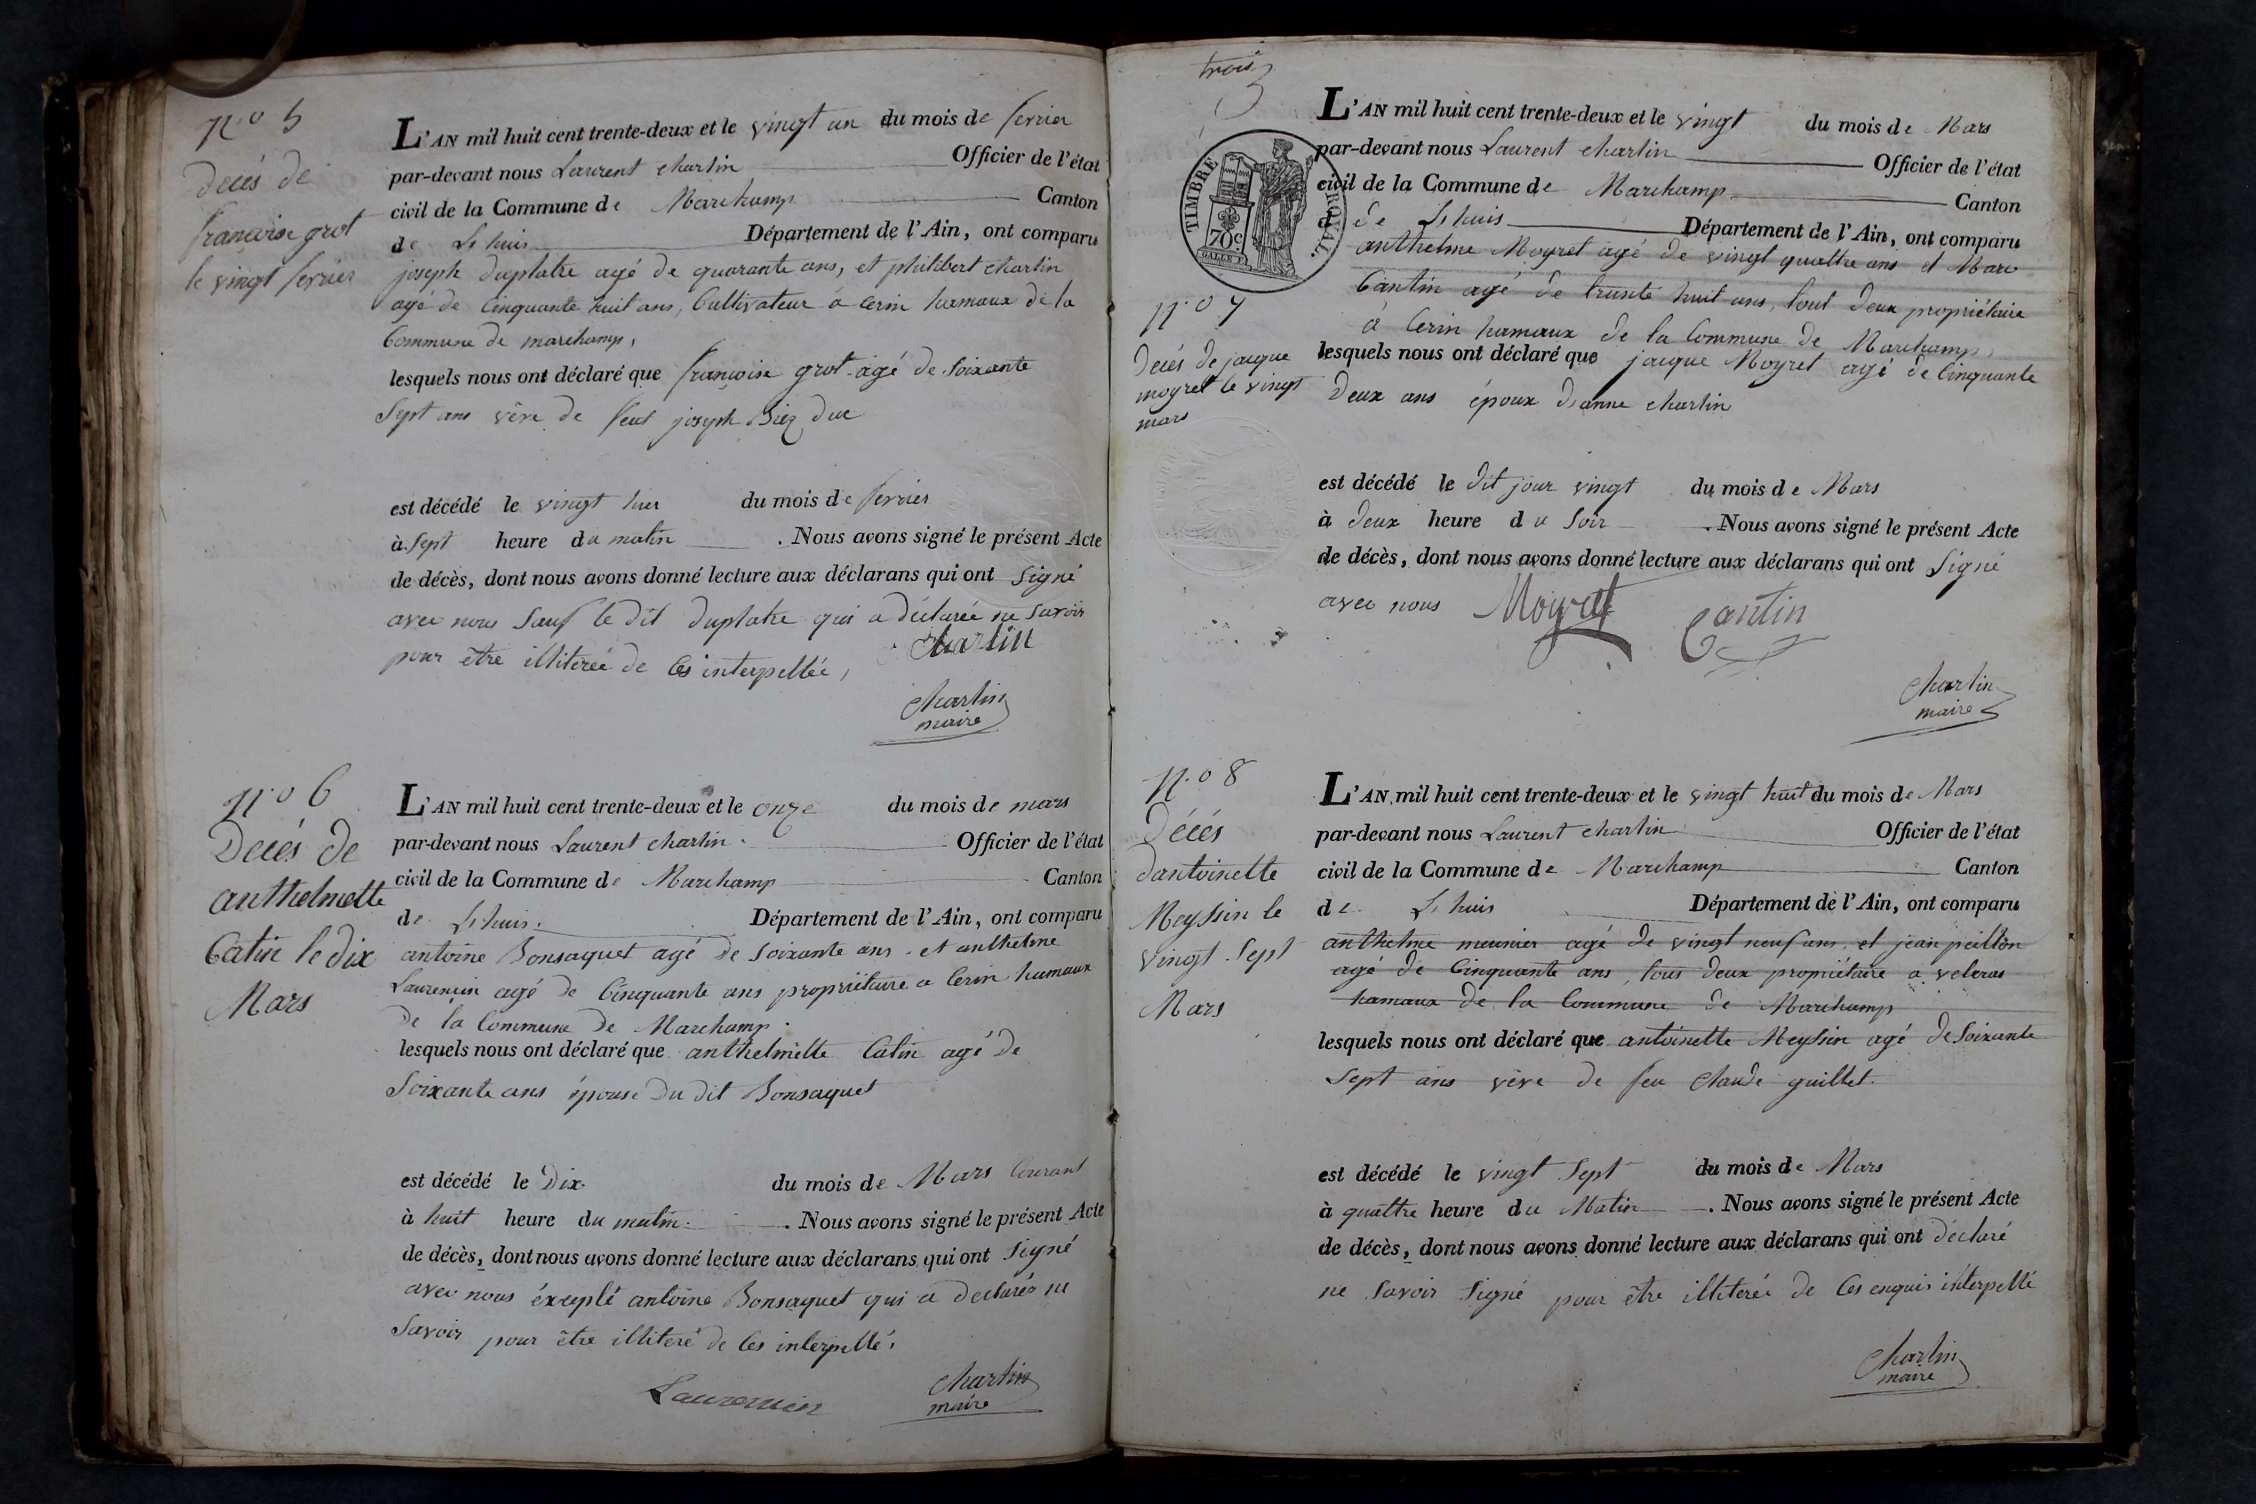 n.o 5
Decés de
françoise grot
le vingt fevrier
L'AN mil huit cent trente-deux et le vingt un du mois de fevrier
par-devant nous Laurent charlin Officier de l'état
civil de la Commune de Marchamp Canton
de L'huis Département de l'Ain, ont comparu
joseph duplatre agé de quarante ans, et philibert charlin
agé de Cinquante huit ans, Cultivateur à Cerin hamaux de la
Commune de marchamp,
lesquels nous ont déclaré que françoise grot agé de Soixante
Sept ans vêve de feut joseph
est décédé le vingt hier du mois de fevrier
à Sept heure du matin. Nous avons signé le présent Acte
de décès, dont nous avons donné lecture aux déclarans qui ont Signé
avec nous Sauf le dit duplatre qui a déclarée ne Savoir
pour être illiterée de Ces interpellée,
charlin
charlin
maire
n.o 6
Decés de
anthelmette
Catin le dix
Mars
L'AN mil huit cent trente-deux et le onze du mois de mars
par-devant nous Laurent charlin. Officier de l'état
civil de la Commune de Marchamp Canton
de L'huis. Département de l'Ain, ont comparu
antoine Bonsaquet agé de Soixante ans et anthelme
Laurencin agé de Cinquante ans propriétaire a Cerin hamaux
de la Commune de Marchamp.
lesquels nous ont déclaré que anthelmette Catin agé de
Soixante ans épouse du dit Bonsaquet
est décédé le Dix du mois de Mars Courant
à huit heure du matin. Nous avons signé le présent Acte
de décès, dont nous avons donné lecture aux déclarans qui ont Signé
avec nous éxcepté antoine Bonsaquet qui a declarés ne
Savoir pour être illiteré de Ces interpellé.
Laurencin
charlin
maire
trois
3
TIMBRE ROYAL.
70c
n.o 7
Décés de jacque
moyret le vingt
mars
L'AN mil huit cent trente-deux et le vingt du mois de Mars
par-devant nous Laurent charlin Officier de l'état
civil de la Commune de Marchamp Canton
de L'huis Département de l'Ain, ont comparu
anthelme Moyret agé de vingt quattre ans et Marc
Cantin agé de trente huit ans, tout deux propriétaire
à Cerin hamaux de la Commune de Marchamp,
lesquels nous ont déclaré que jacque Moyret agé de Cinquante
Deux ans époux d'anne charlin
est décédé le dit jour vingt du mois de Mars
à deux heure du Soir. Nous avons signé le présent Acte
de décès, dont nous avons donné lecture aux déclarans qui ont Signé
avec nous Moyret Cantin
charlin
maire
n.o 8
Décés
d'antoinette
Meyssin le
vingt Sept
Mars
L'AN mil huit cent trente-deux et le vingt huit du mois de Mars
par-devant nous Laurent charlin Officier de l'état
civil de la Commune de Marchamp Canton
de L'huis Département de l'Ain, ont comparu
anthelme meunier agé de vingt neuf ans, et jean peillon
agé de Cinquante ans, tous deux propriétaire a veleras
hamaux de la Commune de Marchamp
lesquels nous ont déclaré que antoinette Meyssin agé de Soixante
Sept ans vêve de feu Claude guillet.
est décédé le vingt Sept du mois de Mars
à quattre heure du Matin. Nous avons signé le présent Acte
de décès, dont nous avons donné lecture aux déclarans qui ont déclaré
ne Savoir Signé pour être illiterée de Ces enquis interpellé
charlin
maire